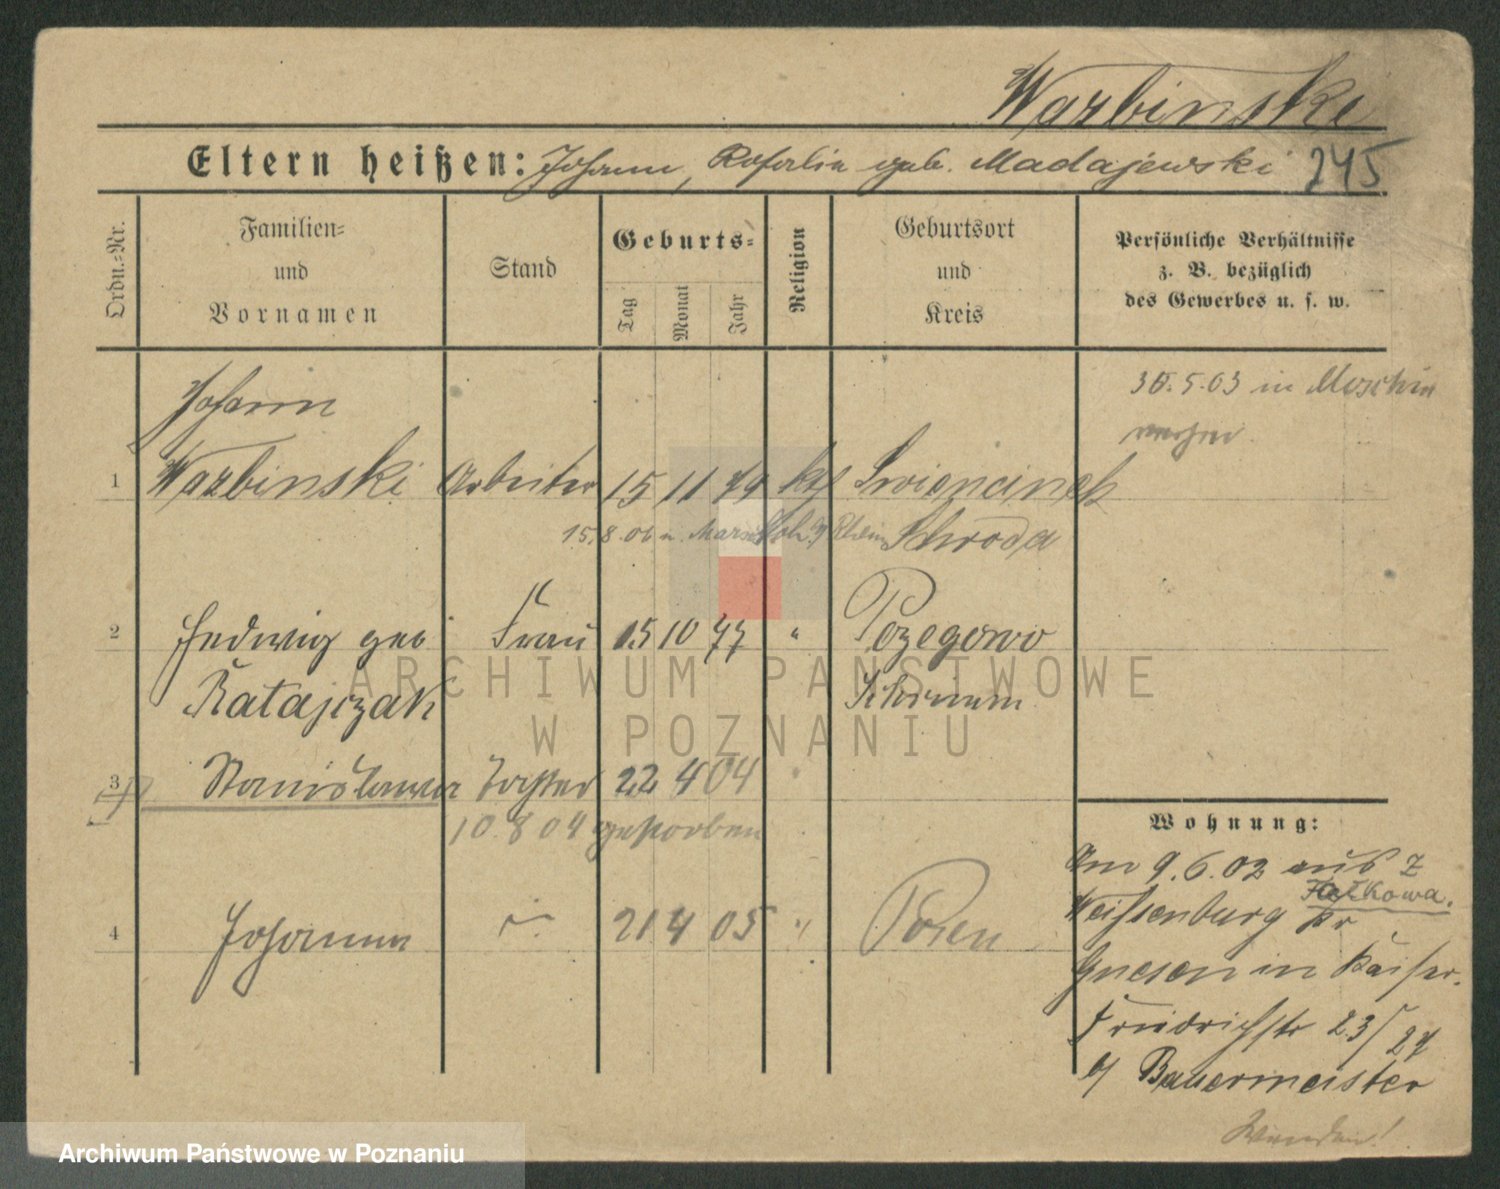 Warbinski
Eltern heißen: Johann, Rosalia geb. Madajewski 245
Ordn.-Nr.
Familien- und Vornamen
Stand
Geburts-
Tag
Monat
Jahr
Religion
Geburtsort und Kreis
Persönliche Verhältnisse z. B. bezüglich des Gewerbes u. s. w.
30.5.03 in Moschin
Johann
1 Warbinski Arbeiter 15 11 79 kth Swiencinek
15.8.06 n. Rhein Schroda
2 Hedwig geb Frau 15 10 77 " Pozegowo
Ratajczak Schrimm
3 Stanislawa Tochter 22 4 04 "
10.8 04 gestorben
4 Johann 21 4 05 " Posen
Wohnung:
Am 9.6.02 aus
Weissenburg Kr
Gnesen in Kaiser.
Friedrichstr 23/27
b/ Bauermeister
Wenden!
ARCHIWUM PAŃSTWOWE
W POZNANIU
Archiwum Państwowe w Poznaniu